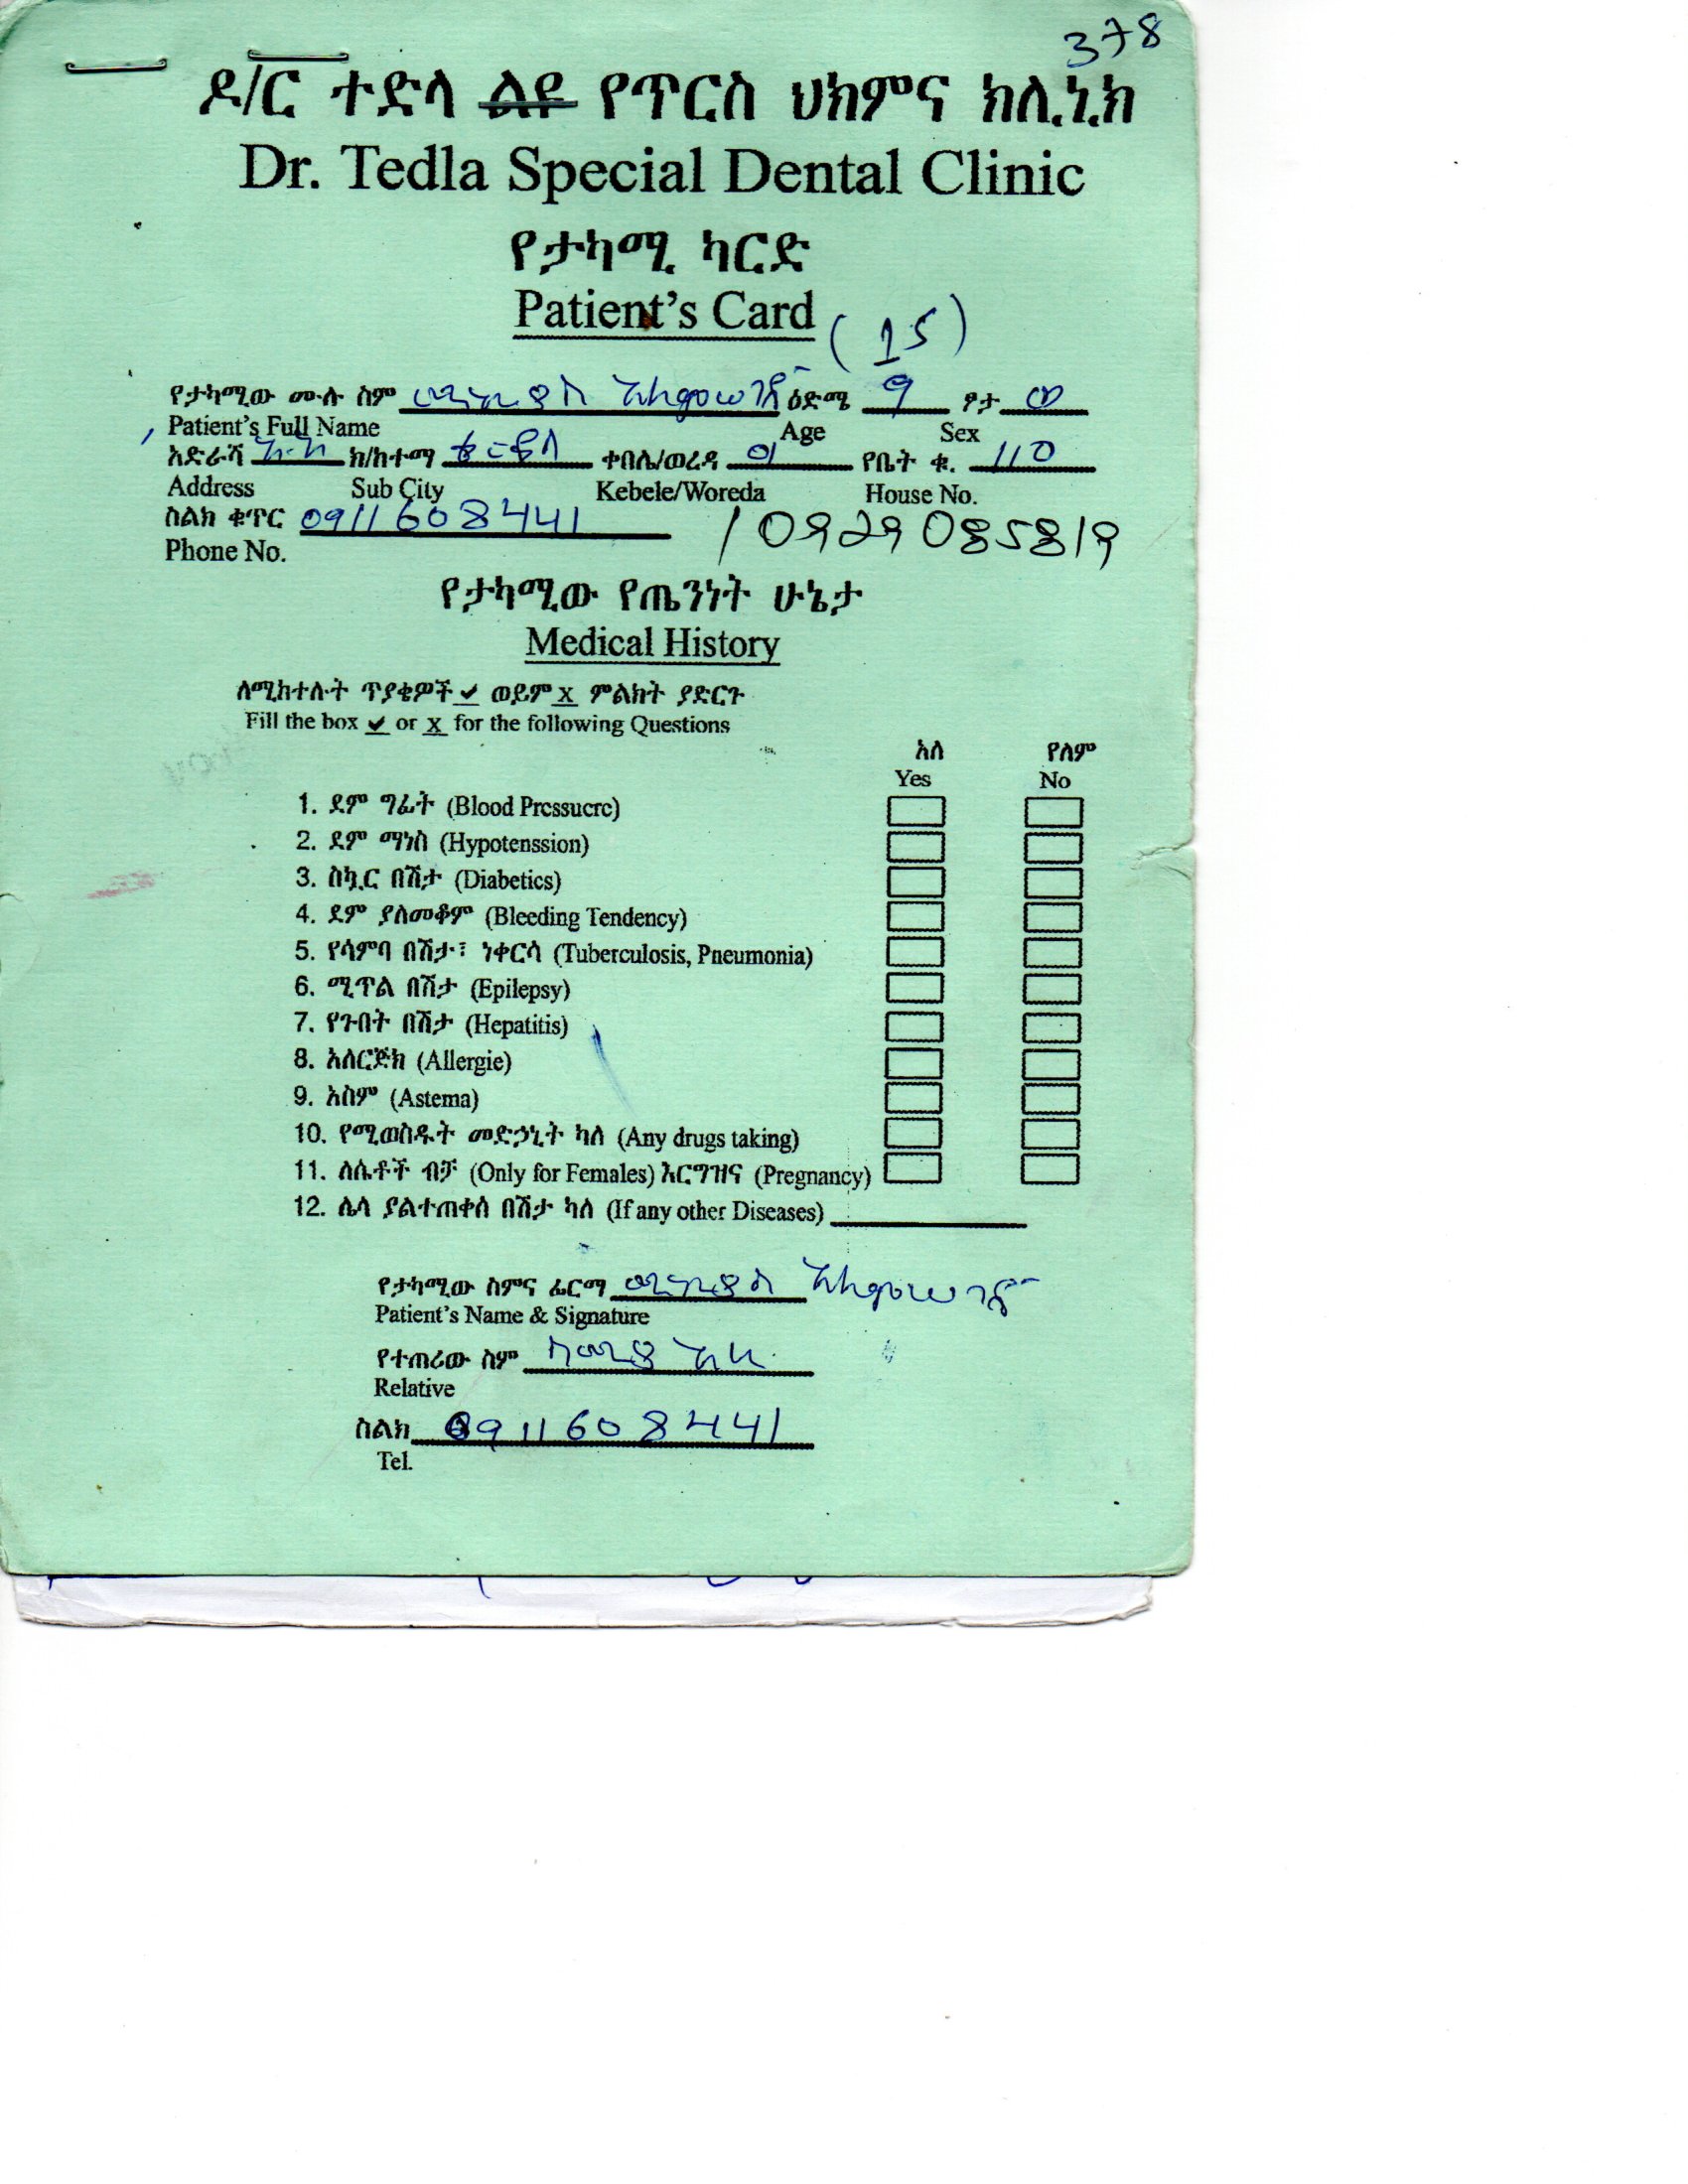 378
ዶ/ር ተድላ ልዩ የጥርስ ህክምና ክሊኒክ
Dr. Tedla Special Dental Clinic
የታካሚ ካርድ
Patient's Card
(15)
የታካሚው ሙሉ ስም ዕድሜ 9 ፆታ ወ
Patient's Full Name Age Sex
አድራሻ አ.አ ክ/ከተማ ቀበሌ/ወረዳ 01 የቤት ቁ. 110
Address Sub City Kebele/Woreda House No.
ስልክ ቁጥር 0911608441 / 0929085819
Phone No.
የታካሚው የጤንነት ሁኔታ
Medical History
ለሚከተሉት ጥያቄዎች ✔ ወይም x ምልክት ያድርጉ
Fill the box ✔ or x for the following Questions
አለ የለም
Yes No
1. ደም ግፊት (Blood Pressuere)
2. ደም ማነስ (Hypotenssion)
3. ስኳር በሽታ (Diabetics)
4. ደም ያለመቆም (Bleeding Tendency)
5. የሳምባ በሽታ፣ ነቀርሳ (Tuberculosis, Pneumonia)
6. ሚጥል በሽታ (Epilepsy)
7. የጉበት በሽታ (Hepatitis)
8. አለርጅክ (Allergie)
9. አስም (Astema)
10. የሚወስዱት መድኃኒት ካለ (Any drugs taking)
11. ለሴቶች ብቻ (Only for Females) እርግዝና (Pregnancy)
12. ሌላ ያልተጠቀሰ በሽታ ካለ (If any other Diseases)
የታካሚው ስምና ፊርማ
Patient's Name & Signature
የተጠሪው ስም
Relative
ስልክ 0911608441
Tel.